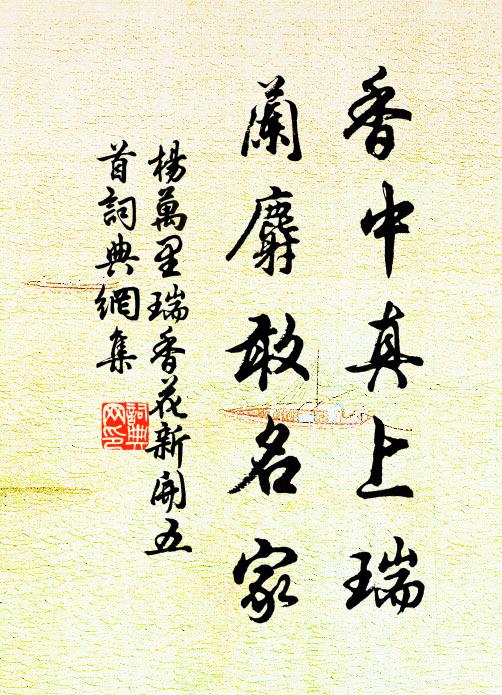 香中真上瑞
蘭麝敢名家
楊萬里瑞香花新開五
首詞典網集
詞典
网印